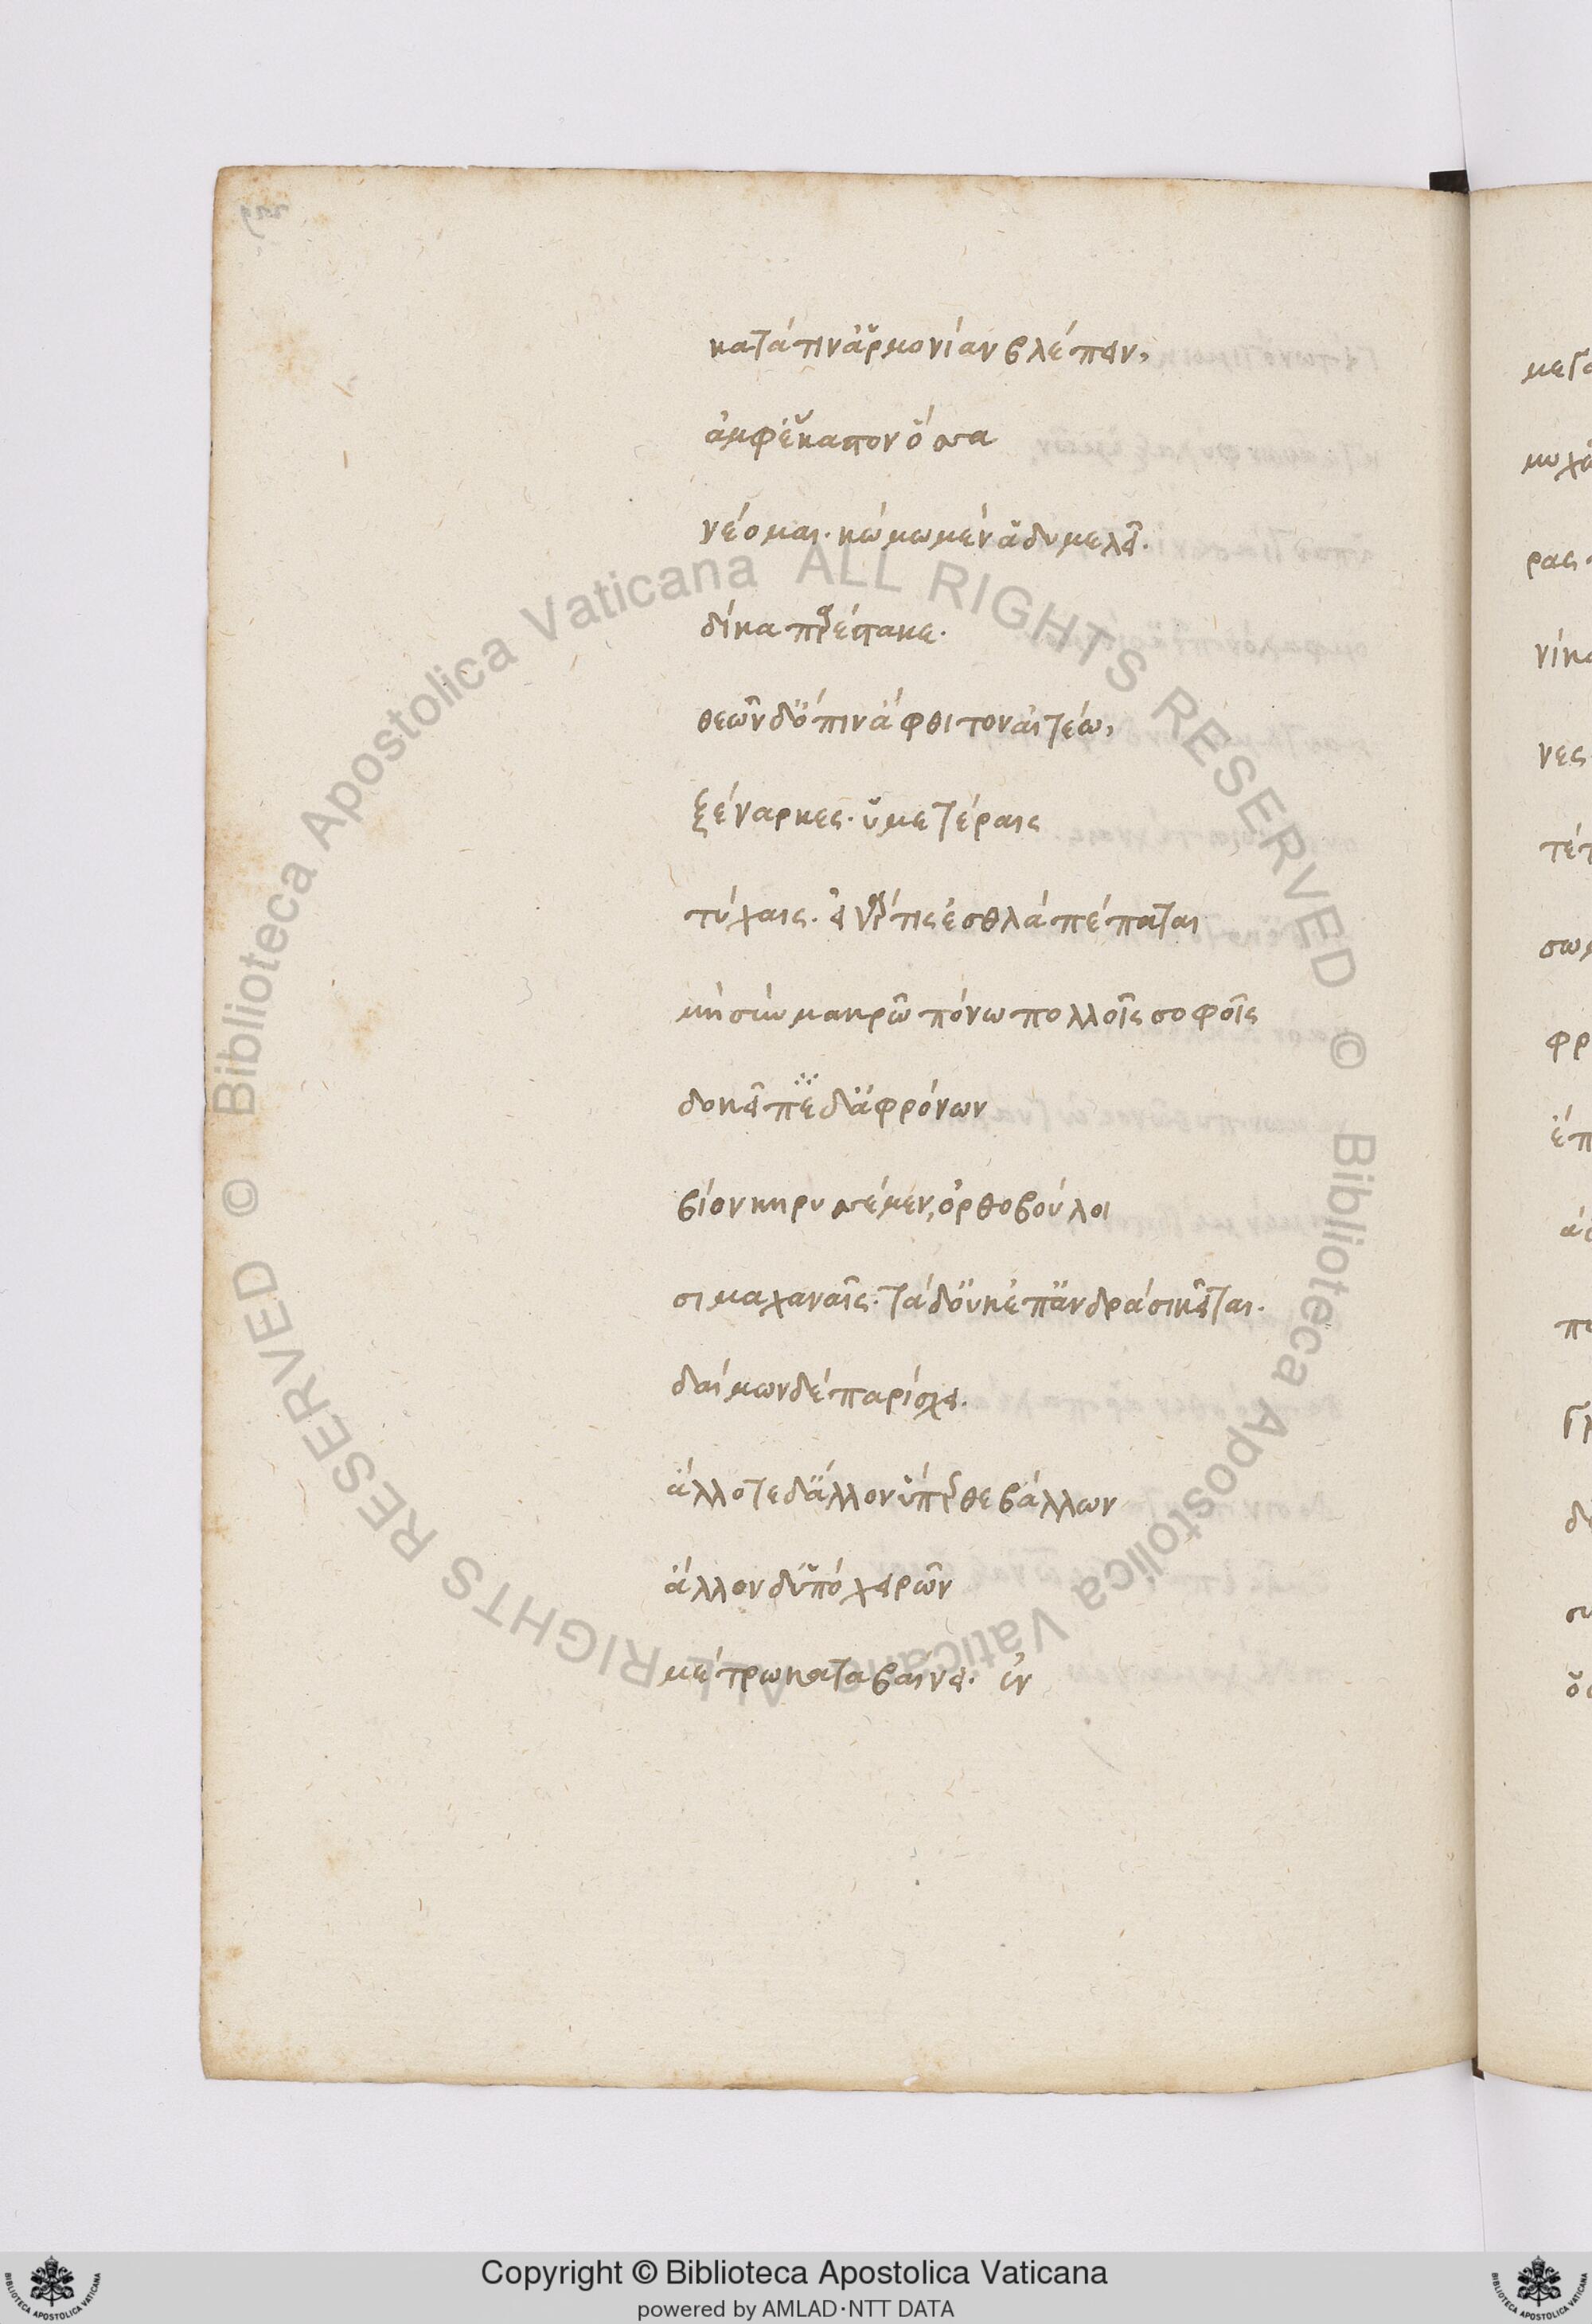 κατά τιν ἁρμονίαν βλέπειν,
ἀμφ' ἕκαστον ὅσσα
νέομαι. κώμω μὲν ἁδυμελεῖ.
δίκα παρέστακε.
θεῶν δ' ὄπιν ἄφθιτον αἰτέω,
ξέναρκες. ὑμετέραις
τύχαις. εἰ γάρ τις ἐσθλὰ πέπαται
μὴ σὺν μακρῶ πόνω πολλοῖς σοφοῖς
δοκεῖ πεδ' ἀφρόνων
βίον κηρυσσέμεν, ὀρθοβούλοι
σι μαχαναῖς. τὰ δ' οὐκ ἐπ' ἀνδράσι κεῖται.
δαίμων δὲ παρίσχει.
ἄλλοτε δ' ἄλλον ὕπερθε βάλλων
ἄλλον δ' ὑπὸ χειρῶν
μέτρω καταβαίνει. ἐν
Copyright © Biblioteca Apostolica Vaticana
powered by AMLAD·NTT DATA